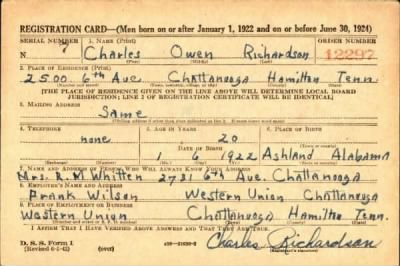 REGISTRATION CARD—(Men born on or after January 1, 1922 and on or before June 30, 1924)
SERIAL NUMBER 1. NAME (Print) ORDER NUMBER
N Charles Owen Richardson 12297
(First) (Middle) (Last)
2. PLACE OF RESIDENCE (Print)
2500 6th Ave. Chattanooga Hamilton Tenn.
[THE PLACE OF RESIDENCE GIVEN ON THE LINE ABOVE WILL DETERMINE LOCAL BOARD
JURISDICTION; LINE 2 OF REGISTRATION CERTIFICATE WILL BE IDENTICAL]
3. MAILING ADDRESS
Same
4. TELEPHONE 5. AGE IN YEARS 6. PLACE OF BIRTH
none 20
DATE OF BIRTH
1 6 1922 Ashland Alabama
7. NAME AND ADDRESS OF PERSON WHO WILL ALWAYS KNOW YOUR ADDRESS
Mrs. R. M Whitten 2731 6th Ave. Chattanooga
8. EMPLOYER'S NAME AND ADDRESS
Frank Wilson Western Union Chattanooga
9. PLACE OF EMPLOYMENT OR BUSINESS
Western Union Chattanooga Hamilton Tenn.
I AFFIRM THAT I HAVE VERIFIED ABOVE ANSWERS AND THAT THEY ARE TRUE.
D. S. S. Form 1
(Revised 6-9-42) (over) Charles Richardson